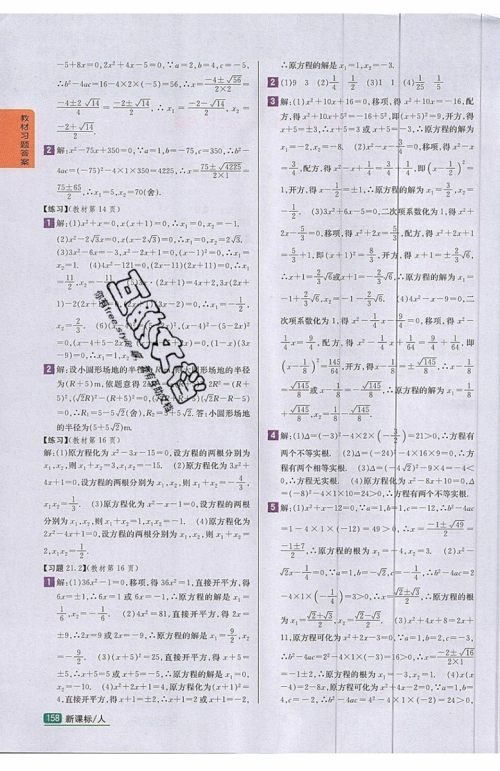 -5+8x=0,2x²+4x-5=0,∵a=2,b=4,c=-5,
∴b²-4ac=16-4×2×(-5)=56,∴x=(-4±√56)/(2×2)=
(-4±2√14)/4=(-2±√14)/2,∴x₁=(-2-√14)/2,x₂=
(-2+√14)/2
教材习题答案
2 解:x²-75x+350=0,∵a=1,b=-75,c=350,∴b²-
4ac=(-75)²-4×1×350=4225,∴x=(75±√4225)/(2×1)=
(75±65)/2,∴x₁=5,x₂=70(舍).
【练习】(教材第14页)
1 解:(1)x²+x=0,x(x+1)=0,∴x₁=0,x₂=-1.
(2)x²-2√3x=0,x(x-2√3)=0,∴x₁=0,x₂=2√3.
(3)3x²-6x=-3,x²-2x+1=0,(x-1)²=0,∴x₁=
x₂=1. (4)4x²-121=0,(2x-11)(2x+11)=0,∴x₁
=11/2,x₂=-11/2.
x₂=2/3.
=0,(x-4+5-2x)
-9)=0,∴x₁=1,x₂
2 解:设小圆形场地的半径
为(R+5)m,依题意得
=0,∴R₁=5-5√2(舍),R₂=5+5√2.答:小圆形场地
的半径为(5+5√2)m.
【练习】(教材第16页)
解:(1)原方程化为x²-3x-15=0,设方程的两根分别为
x₁,x₂,则x₁+x₂=3,x₁x₂=-15. (2)原方程化为3x²+
4x+1=0,设方程的两根分别为x₁,x₂,则x₁+x₂=-4/3,
x₁x₂=1/3. (3)原方程化为x²-x-1=0,设方程的两根
分别为x₁,x₂,则x₁+x₂=1,x₁x₂=-1. (4)原方程化为
2x²-4x+1=0,设方程的两根分别为x₁,x₂,则x₁+x₂=
2,x₁x₂=1/2.
【习题21.2】(教材第16页)
1 解:(1)36x²-1=0,移项,得36x²=1,直接开平方,得
6x=±1,∴6x=1或6x=-1,∴原方程的解是x₁=
1/6,x₂=-1/6. (2)4x²=81,直接开平方,得2x=
±9,∴2x=9或2x=-9,∴原方程的解是x₁=9/2,x₂
=-9/2. (3)(x+5)²=25,直接开平方,得x+5=
±5,∴x+5=5或x+5=-5,∴原方程的解是x₁=0,
x₂=-10. (4)x²+2x+1=4,原方程化为(x+1)²=
4,直接开平方,得x+1=±2,∴x+1=2或x+1=-2,
158 新课标/人
∴原方程的解是x₁=1,x₂=-3.
2 (1)9 3 (2)1/4 1/2 (3)1 1 (4)1/25 1/5
3 解:(1)x²+10x+16=0,移项,得x²+10x=-16,配
方,得x²+10x+5²=-16+5²,即(x+5)²=9,开方,得
x+5=±3,∴x+5=3或x+5=-3,∴原方程的解为
x₁=-2,x₂=-8. (2)x²-x-3/4=0,移项,得x²-x
=3/4,配方,得x²-x+1/4=3/4+1/4,即(x-1/2)²=
1,开方,得x-1/2=±1,∴原方程的解为x₁=3/2,x₂=
-1/2. (3)3x²+6x-5=0,二次项系数化为1,得x²+
2x-5/3=0,移项,得x²+2x=5/3,配方,得x²+2x+1
=5/3+1,即(x+1)²=8/3,开方,得x+1=±2/3√6,
∴x+1=2/3√6或x+1=-2/3√6,∴原方程的解为x₁=
-1+2/3√6,x₂=-1-2/3√6. (4)4x²-x-9=0,二
次项系数化为1,得x²-1/4x-9/4=0,移项,得x²-
1/4x=9/4,配方,得x²-1/4x+1/64=9/4+1/64,即
(x-1/8)²=145/64,开方,得x-1/8=±√145/8,∴x-1/8=
√145/8或x-1/8=-√145/8,∴原方程的解为x₁=1/8+
√145/8,x₂=1/8-√145/8.
4 解:(1)Δ=(-3)²-4×2×(-3/2)=21>0,∴方程有
两个不等实根. (2)Δ=(-24)²-4×16×9=0,∴方
程有两个相等实根. (3)Δ=(-4√2)²-9×4=-4<
0,∴方程无实根. (4)原方程化为x²-8x+10=0,Δ
=(-8)²-4×1×10=24>0,∴方程有两个不等实根.
5 解:(1)x²+x-12=0,∵a=1,b=1,c=-12,∴b²-4ac
=1-4×1×(-12)=49>0,∴x=(-1±√49)/2=
(-1±7)/2,∴原方程的根为x₁=-4,x₂=3. (2)x²-
√2x-1/4=0,∵a=1,b=-√2,c=-1/4,∴b²-4ac=2
-4×1×(-1/4)=3>0,∴x=(√2±√3)/2,∴原方程的根
为x₁=(√2+√3)/2,x₂=(√2-√3)/2. (3)x²+4x+8=2x+
11,原方程可化为x²+2x-3=0,∵a=1,b=2,c=-3,
∴b²-4ac=2²-4×1×(-3)=16>0,∴x=(-2±√16)/(2×1)
=-1±2,∴原方程的根为x₁=-3,x₂=1. (4)x(x
-4)=2-8x,原方程可化为x²+4x-2=0,∵a=1,b=
4,c=-2,∴b²-4ac=4²-4×1×(-2)=24>0,